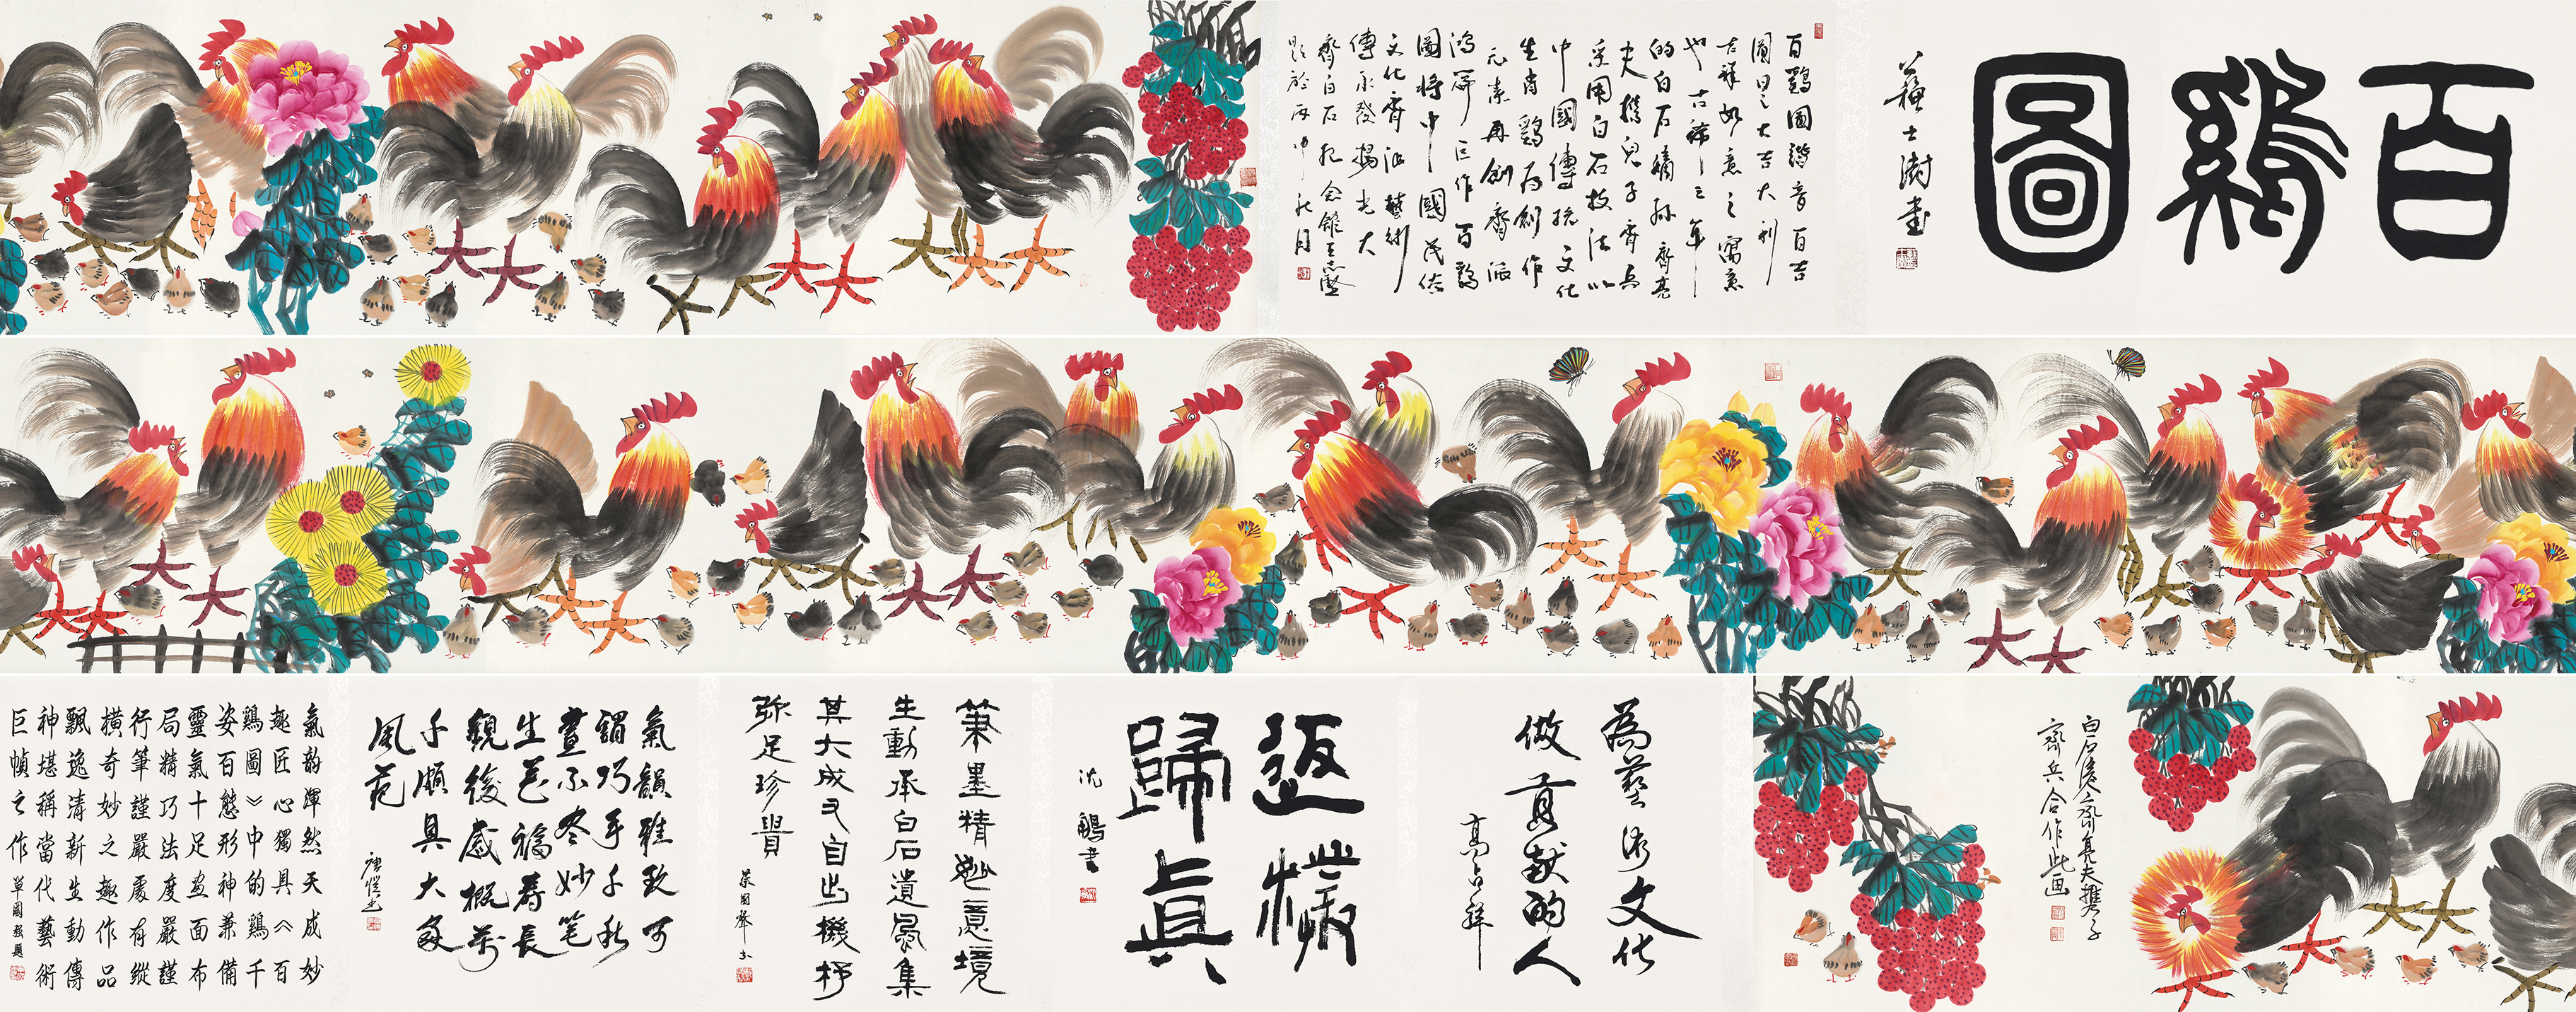 百鷄圖
蘇士澍書
百鷄圖諧音百吉
圖曰之大吉大利
吉祥如意之寓意
也古稀之年
的白石嫡孫齊亮
夫携兒子齊兵
采用白石技法以
中國傳統文化
生肖鷄爲創作
元素再創齊派
鴻篇巨作百鷄
圖將中國民俗
文化齊派藝術
傳承發揚光大
齊白石紀念館王志堅
題於丙申秋月
白石後裔齊亮夫携子
齊兵合作此画
為藝術文化
做貢獻的人
高占祥
返樸
歸真
沈鵬書
筆墨精妙意境
生動承白石遺風集
其大成又自出機杼
弥足珍貴
氣韻雅致可
謂巧手千秋
畫不盡妙笔
生花福壽長
觀後感概萬
千頗具大家
風范
唐愷書
氣韵渾然天成妙
趣匠心獨具《百
鷄圖》中的鷄千
姿百態形神兼備
靈氣十足畫面布
局精巧法度嚴謹
行筆謹嚴處有縱
橫奇妙之趣作品
飄逸清新生動傳
神堪稱當代藝術
巨幀之作
單國強題